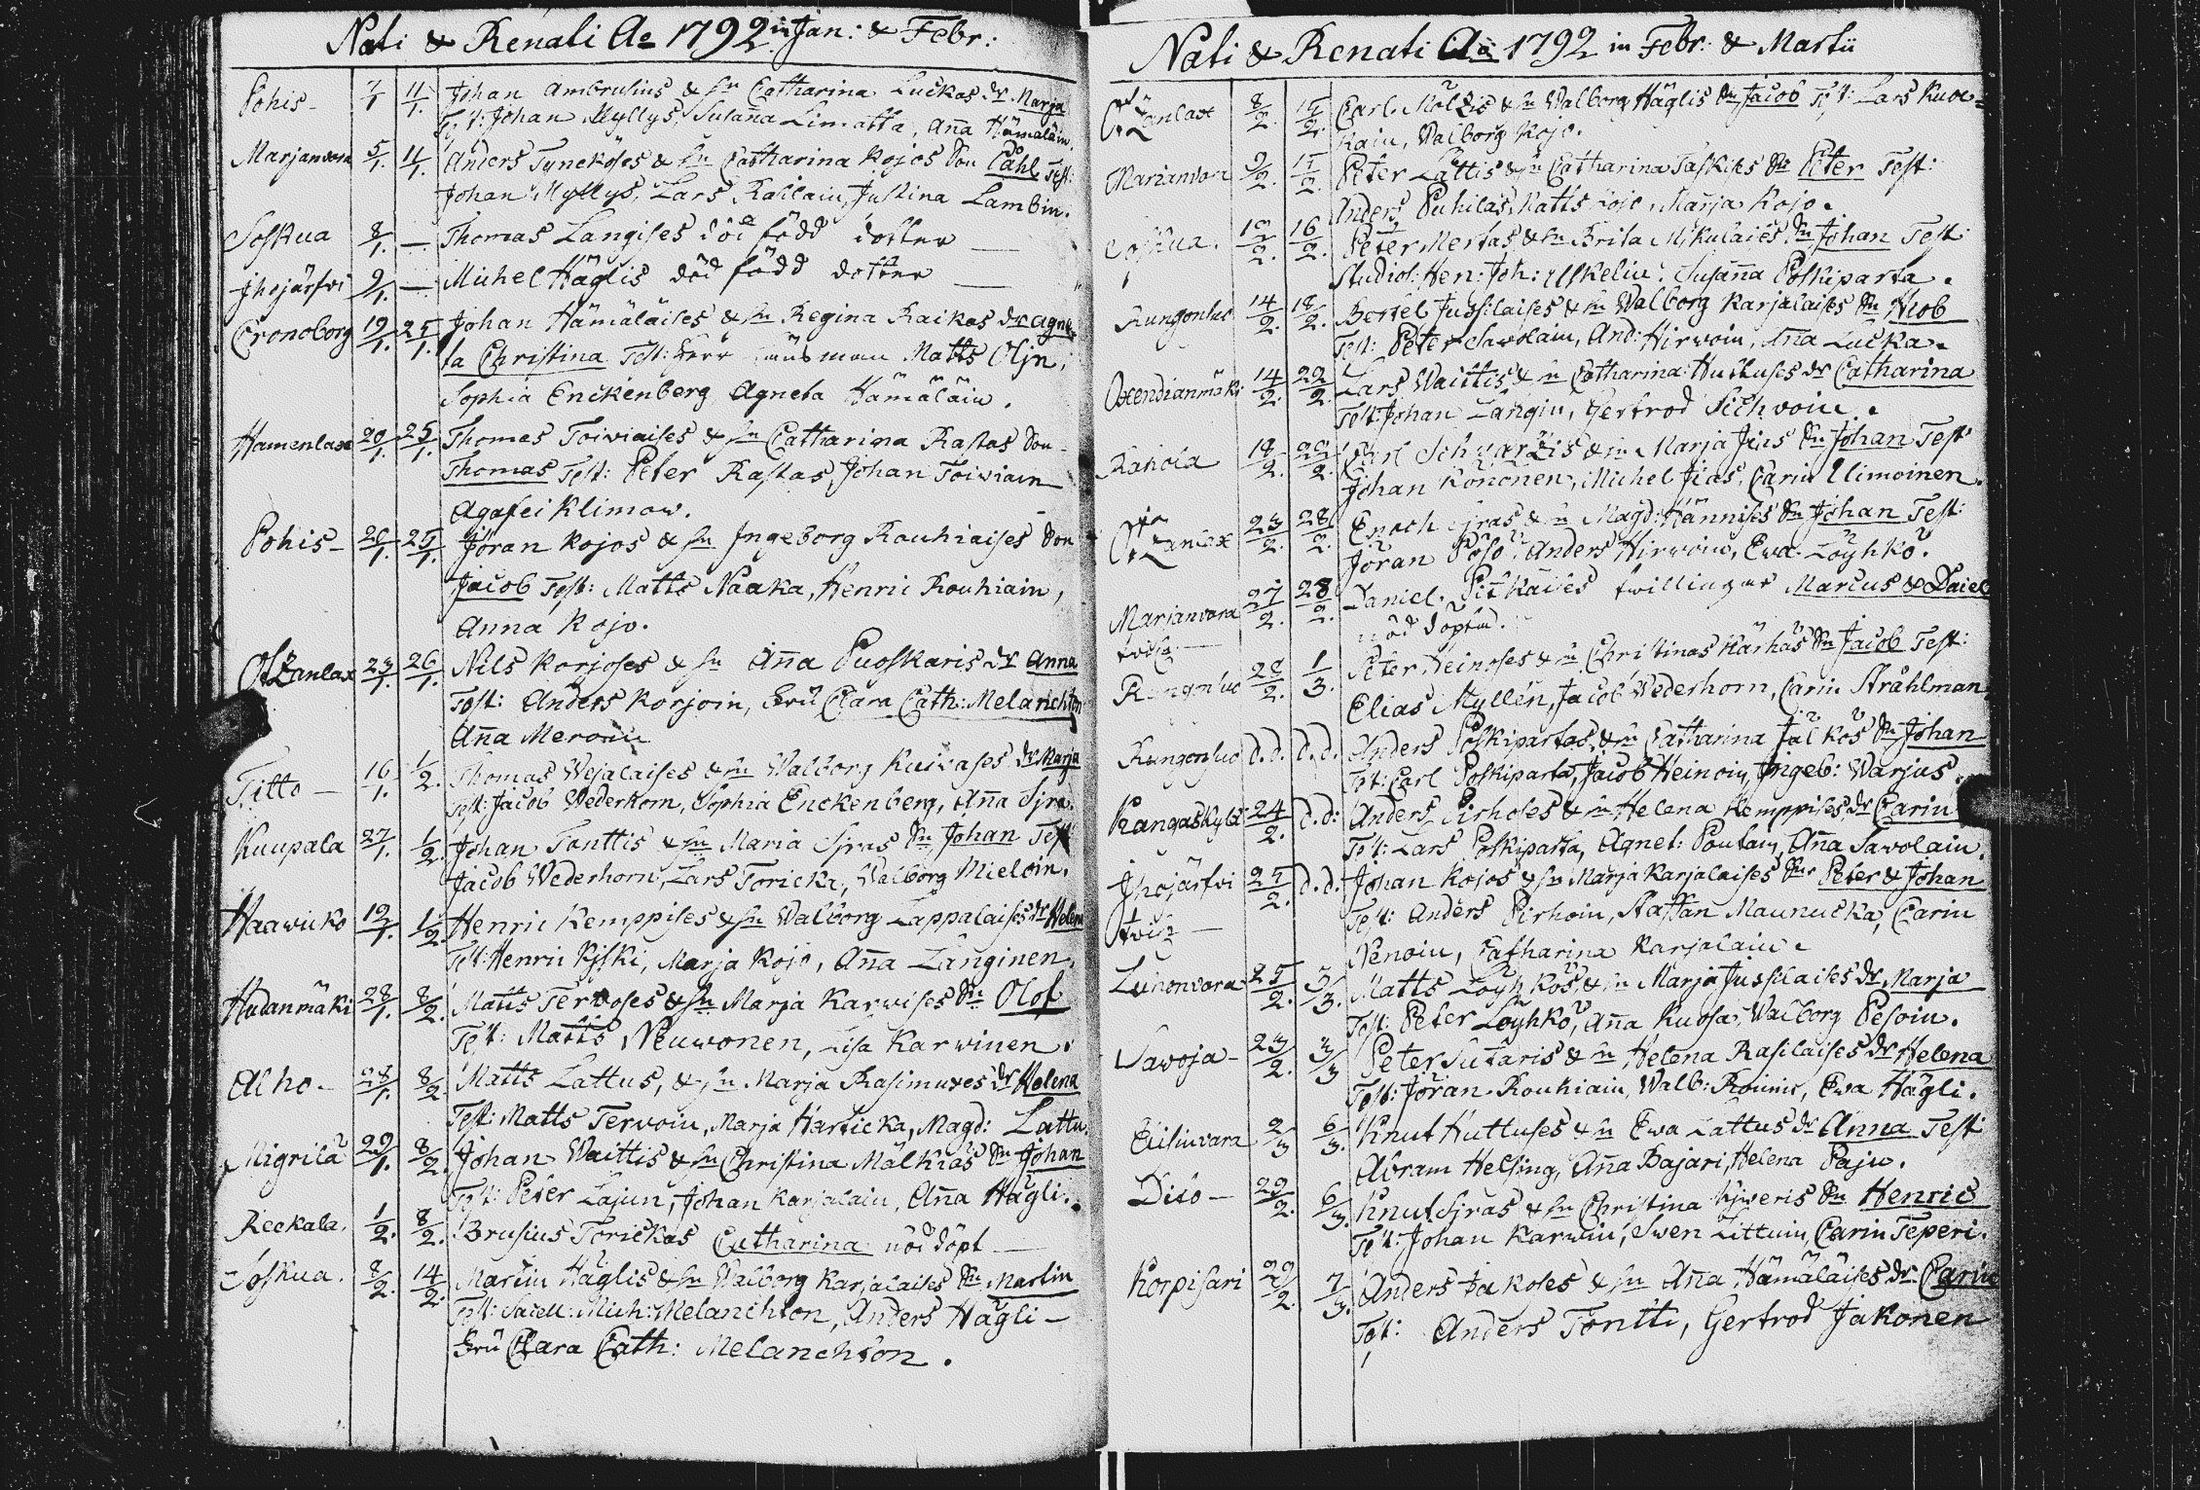 Nati & Renati Ao 1792 in Jan: & Febr:
Pohis- 7/1 11/1. Johan Ambrusius & hu Catharina Luckas dr Marja
Test: Johan Myllys, Susaña Limatta, Aña Hämäläin.
Marjanvara 5/1. 11/1. Anders Tyneköses & hu Catharina Kojos Son Påhl Test:
Johan Myllys, Lars Rallain, Justina Lambin.
Soskua 8/1. — Thomas Langises död född dotter —
Jhojärfvi 9/1. — Michel Häglis död född dotter —
Cronoborg 19/1. 25/1. Johan Hämäläises & hu Regina Raikas dr Agne-
ta Christina Test: Herr Länsman Matts Olin,
Sophia Enckenberg Agneta Hämäläin.
Hamenlax 20/1. 25/1. Thomas Toiviaises & hu Catharina Rastas Son
Thomas Test: Peter Rastas, Johan Toiviain
Agafei Klimow.
Pohis- 20/1. 25/1. Jöran Kojos & hu Ingeborg Rouhiaises Son
Jacob Test: Matts Naaka, Henric Rouhiain,
Anna Kojo.
Otzanlax 23/1. 26/1. Nils Korjoses & hu Aña Puoskaris dr Anna
Test: Anders Korjoin, Fru Clara Cath: Melanchton
Aña Meroin
Titto — 16/1. 1/2. Thomas Wejalaises & hu Walborg Kuivases dr Marja
Test: Jacob Wederhorn, Sophia Enckenberg, Aña Sjra.
Kuupala 27/1. 1/2. Johan Tonttis & hu Maria Sjras Sn Johan Test
Jacob Wederhorn, Lars Toricka, Walborg Mieloin.
Haawicko 19/1. 1/2. Henric Kemppises & hu Walborg Lappalaises dr Helena
Test: Henric Kiski, Marja Kojo, Aña Länginen.
Hudanmäki 28/1. 8/2. Matts Tervoses & hu Marja Karwises Sn Olof
Test: Matts Neuwonen, Lisa Karwinen.
Alho- 28/1. 8/2. Matts Lattus, & hu Marja Rasimuxes dr Helena
Test: Matts Tervoin, Marja Harticka, Magd: Lattu.
Migrilä 29/1. 8/2. Johan Waittis & hu Christina Mälkiäs Sn Johan
Test: Peter Lajun, Johan Karjalain, Aña Hägli.
Reekala. 1/2. 8/2. Brusius Torickas Catharina nöd döpt —
Soskua. 8/2. 14/2. Martin Häglis & hu Walborg Karjalaises Sn Martin
Test: Mich: Melanchton, Anders Hägli —
Fru Clara Cath: Melanchton.
Nati & Renati Ao 1792 in Febr: & Martii
Otzanlax 8/2. 15/2. Carl Möldis & hu Walborg Häglis Sn Jacob Test: Lars Kuok-
kain, Walborg Kojo.
Marianvara 9/2. 15/2. Peter Lättis & hu Catharina Taskises Sn Peter Test:
Anders Puhilas, Matts Kojo, Marja Kojo.
Soskua. 10/2. 16/2. Peter Mertas & hu Brita Mikulaies Sn Johan Test:
Studios: Hen: Joh: Uskelin. Susaña Poskiparta.
Kungonluo 14/2. 18/2. Bertel Jussilaises & hu Walborg Karjalaises Sn Hiob
Test: Peter Sawolain, And: Hirvoin, Aña Lucka.
Oxendianmäki 14/2. 22/2. Lars Waittis & hu Catharina Huttuses dr Catharina
Test: Johan Längin, Gertrod Sichvoin.
Rahola 18/2. 22/2. Carl Schvartzis & hu Marja Jias Sn Johan Test
Johan Könönen, Michel Jias, Carin Ulimoinen.
Otzanlax 23/2. 28/2. Enoch Sjras & hu Magd: Hännises Sn Johan Test:
Jöran Pösö, Anders Hirwoin, Ewa Löyhkö.
Marianvara 27/2. 28/2. Daniel Pitkäies twillingar Marcus & Daiel
nöd döpta.
Kungonluo 28/2. 1/3. Peter Heinoses & hu Christinas Kärhäs Sn Jacob Test:
Elias Myllen, Jacob Wederhorn, Carin Stråhlman
Kungonluo d.d. d.d. Anders Poskipartas & hu Catharina Jälkös Sn Johan
Test: Carl Poskiparta, Jacob Heinoin, Ingeb: Warjus.
Kangaskylä 24/2. d.d: Anders Pirhoses & hu Helena Kemppises dr Carin
Test: Lars Poskiparta, Agnet: Poutain, Aña Savolain.
Jhojärfvi 25/2. d.d. Johan Kojos & hu Marja Karjalaises Snr Peter & Johan
Test: Anders Pirhoin, Staffan Maunucka, Carin
Nenoin, Catharina Karjalain.
Luhonvara 25/2. 3/3. Matts Löyhkös & hu Marja Jussilaises dr Marja
Test: Peter Löyhkö, Aña Kuosa, Walborg Pesoin.
Savoja- 23/2. 3/3 Peter Sutaris & hu Helena Rasilaises dr Helena
Test: Jöran Rouhiain, Walb: Roinic, Ewa Hägli.
Eilinvara 2/3 6/3. Knut Huttuses & hu Ewa Lattus dr Anna Test
Abram Helsing, Aña Bajari, Helena Paju.
Disö — 29/2. 6/3. Knut Sjras & hu Christina Kiweris Sn Henric
Test: Johan Karwin, Swen Littuin, Carin Teperi.
Korpisari 29/2. 7/3. Anders Jakoses & hu Aña Hämäläises dr Carin
Test: Anders Tontti, Gertrod Jakonen